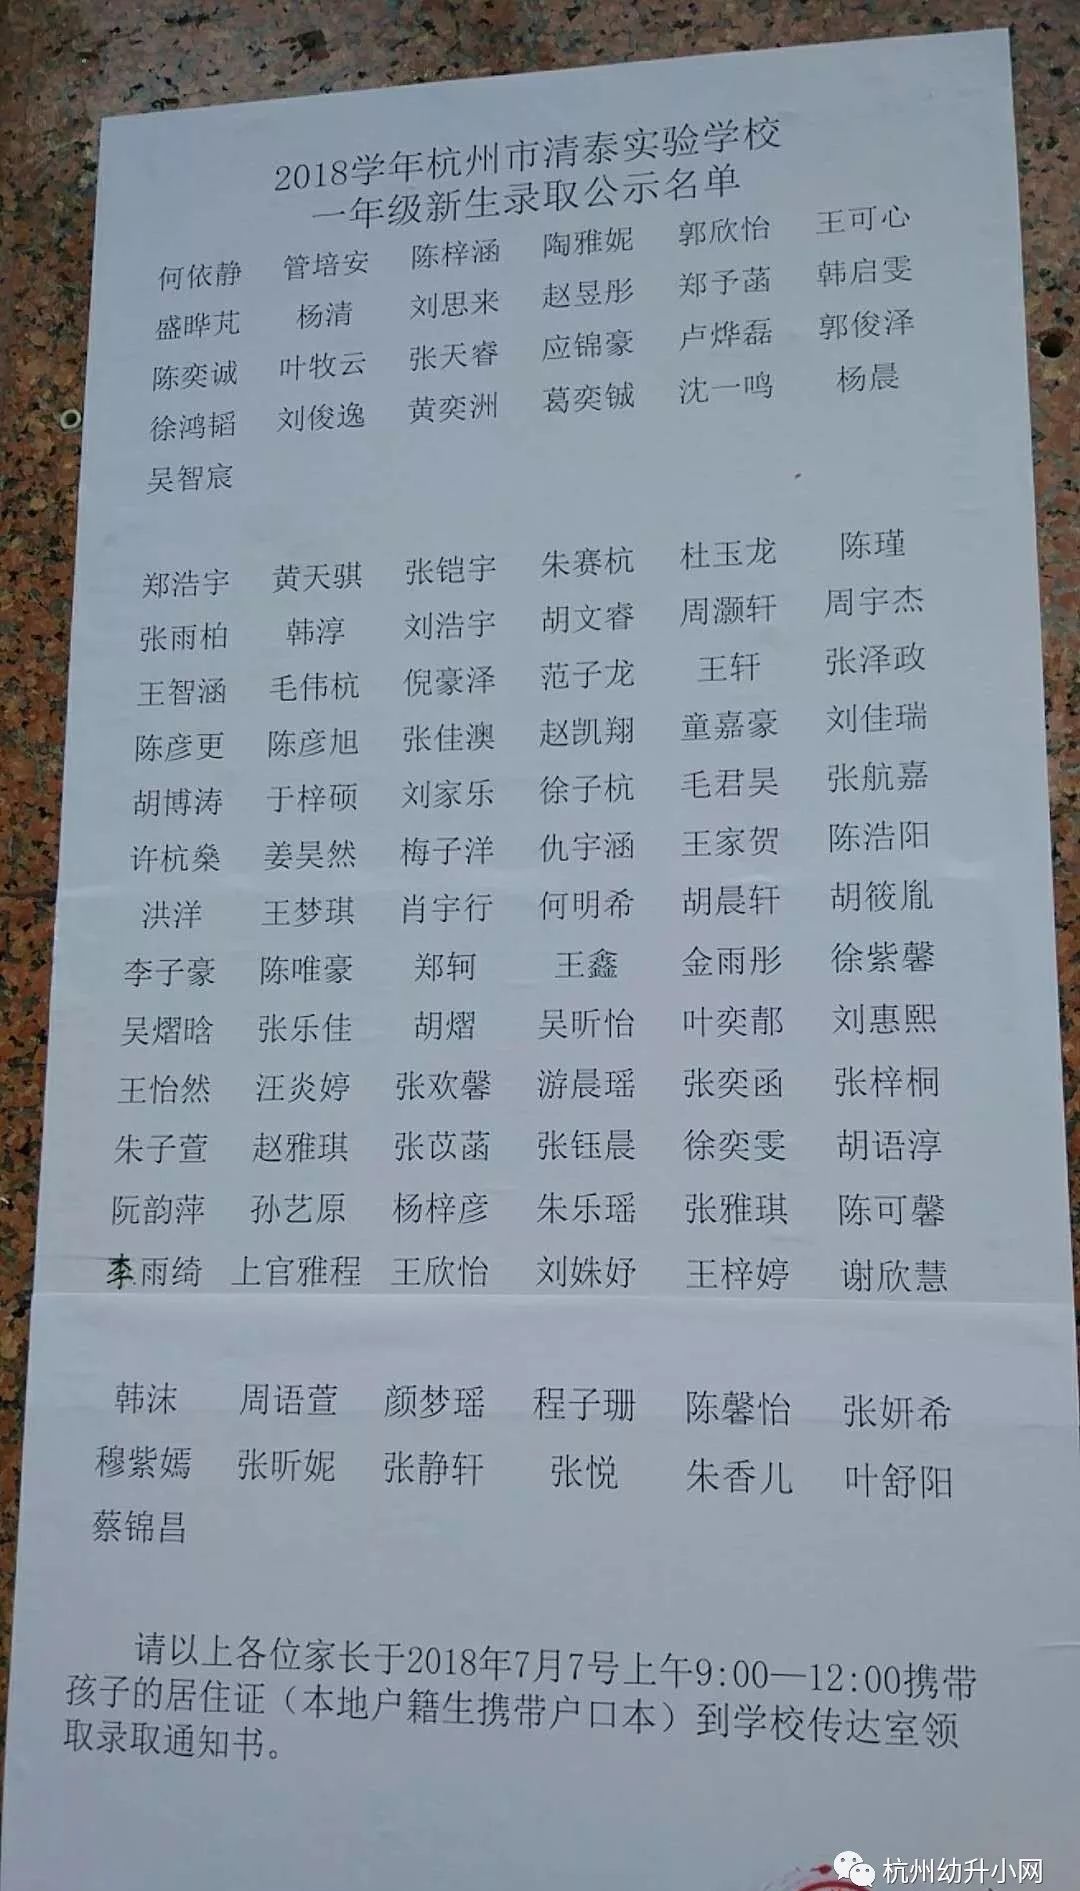 2018学年杭州市清泰实验学校
一年级新生录取公示名单
何依静 管培安 陈梓涵 陶雅妮 郭欣怡 王可心
盛晔芃 杨清 刘思来 赵昱彤 郑予菡 韩启雯
陈奕诚 叶牧云 张天睿 应锦豪 卢烨磊 郭俊泽
徐鸿韬 刘俊逸 黄奕洲 葛奕铖 沈一鸣 杨晨
吴智宸
郑浩宇 黄天骐 张铠宇 朱赛杭 杜玉龙 陈瑾
张雨柏 韩淳 刘浩宇 胡文睿 周灏轩 周宇杰
王智涵 毛伟杭 倪豪泽 范子龙 王轩 张泽政
陈彦更 陈彦旭 张佳澳 赵凯翔 童嘉豪 刘佳瑞
胡博涛 于梓硕 刘家乐 徐子杭 毛君昊 张航嘉
许杭燊 姜昊然 梅子洋 仇宇涵 王家贺 陈浩阳
洪洋 王梦琪 肖宇行 何明希 胡晨轩 胡筱胤
李子豪 陈唯豪 郑轲 王鑫 金雨彤 徐紫馨
吴熠晗 张乐佳 胡熠 吴昕怡 叶奕鄁 刘惠熙
王怡然 汪炎婷 张欢馨 游晨瑶 张奕函 张梓桐
朱子萱 赵雅琪 张苡菡 张钰晨 徐奕雯 胡语淳
阮韵萍 孙艺原 杨梓彦 朱乐瑶 张雅琪 陈可馨
李雨绮 上官雅程 王欣怡 刘姝妤 王梓婷 谢欣慧
韩沫 周语萱 颜梦瑶 程子珊 陈馨怡 张妍希
穆紫嫣 张昕妮 张静轩 张悦 朱香儿 叶舒阳
蔡锦昌
请以上各位家长于2018年7月7号上午9:00—12:00携带
孩子的居住证（本地户籍生携带户口本）到学校传达室领
取录取通知书。
杭州幼升小网